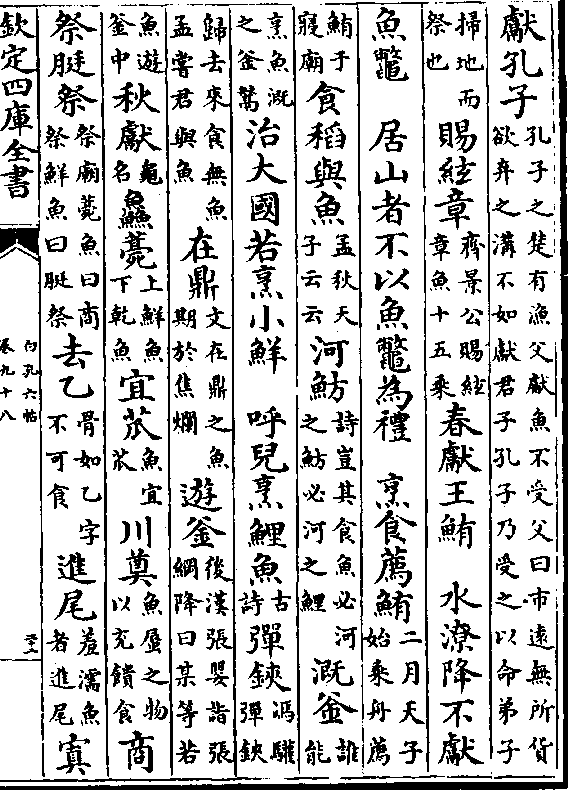 獻孔子孔子之楚有漁父獻魚不受父曰市遠無所貨欲弃之溝不如獻君子孔子乃受之以命弟子
掃地而祭也 賜絃章齊景公賜絃章魚十五乘 春獻王鮪 水潦降不獻
魚鼈 居山者不以魚鼈為禮 烹食薦鮪二月天子始乘舟薦
鮪于寢廟 食稻與魚孟秋天子云云 河魴詩豈其食魚必河之魴必河之鯉 溉釜誰能
烹魚溉之釜鬵 治大國若烹小鮮 呼兒烹鯉魚古詩 彈鋏馮驩彈鋏
歸去來食無魚孟嘗君與魚 在鼎文在鼎之魚期於焦爛 遊釜後漢張嬰詣張綱降曰某等若
魚遊釜中 秋獻龜名 鱻薧上鮮魚下乾魚 宜苽魚宜苽 川奠魚蜃之物以充饋食 商
祭脡祭祭廟薧魚曰商祭鮮魚曰脡祭 去乙骨如乙字不可食 進尾羞濡魚者進尾 寘
欽定四庫全書
白孔六帖
卷九十八